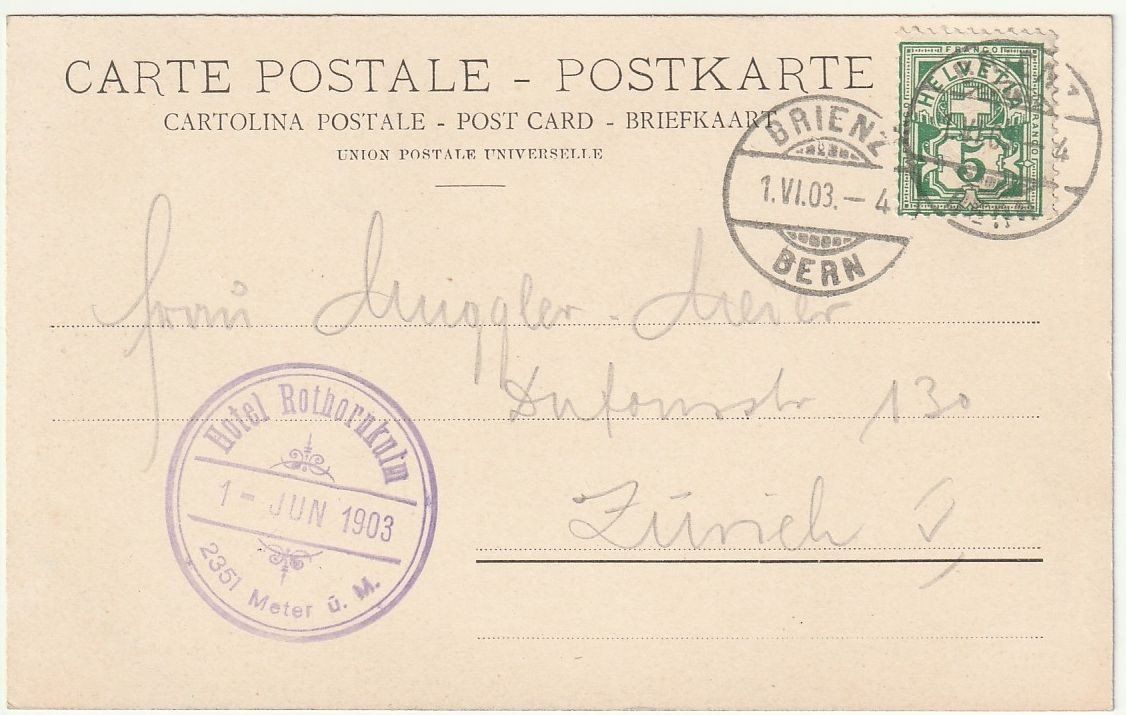 CARTE POSTALE - POSTKARTE
CARTOLINA POSTALE - POST CARD - BRIEFKAART
UNION POSTALE UNIVERSELLE
FRANCO
HELVETIA
FRANCO
5
BRIENZ
1.VI.03. - 4
BERN
Frau Muggler-Meier
Dufourstr 130
Zürich V
Hotel Rothornkulm
1 - JUN 1903
2351 Meter ü. M.